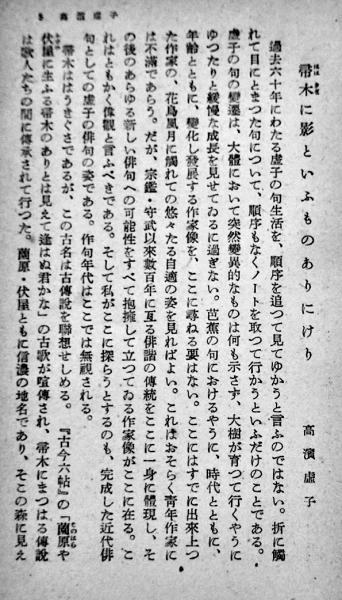 3 高濱虛子
帚木に影といふものありにけり
高濱虛子
過去六十年にわたる虛子の句生活を、順序を追つて見てゆかうと言ふのではない。折に觸
れて目にとまつた句について、順序もなくノートを取つて行かうといふだけのことである。
虛子の句の變遷は、大體において突然變異的なものは何も示さず、大樹が育つて行くやうに
ゆつたりと緩慢な成長を見せてゐるに過ぎない。芭蕉の句におけるやうに、時代とともに、
年齡とともに、變化し發展する作家像を、ここに尋ねる要はない。ここにはすでに出來上つ
た作家の、花鳥風月に觸れての悠々たる自適の姿を見ればよい。これはおそらく靑年作家に
は不滿であらう。だが、宗鑑・守武以來數百年に亙る俳諧の傳統をここに一身に體現し、そ
の後のあらゆる新しい俳句への可能性をすべて抱擁して立つてゐる作家像がここに在る。こ
れはともかく偉觀と言ふべきである。そして私がここに探らうとするのも、完成した近代俳
句としての虛子の俳句の姿である。作句年代はここでは無視される。
帚木はははうきぐさであるが、この古名は古傳說を聯想せしめる。『古今六帖』の「薗原や
伏屋に生ふる帚木のありとは見えて逢はぬ君かな」の古歌が喧傳され、帚木にまつはる傳說
は歌人たちの間に傳承されて行つた。薗原・伏屋ともに信濃の地名であり、そこの森に見え